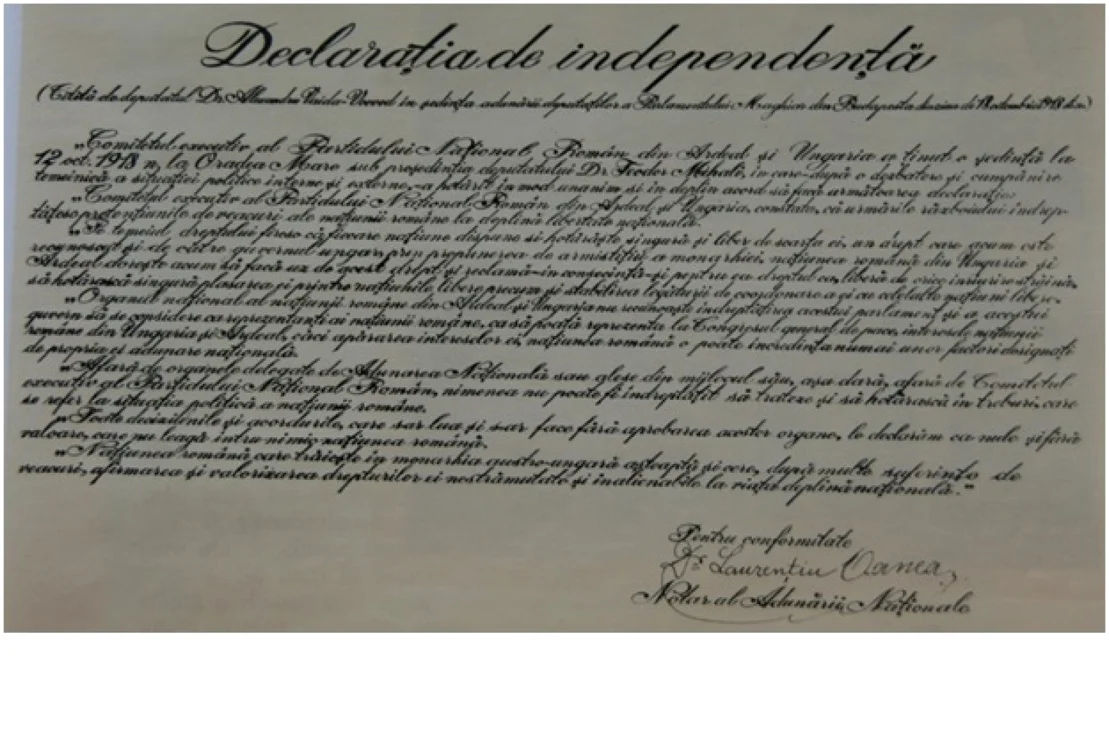 Declarația de independență
(Citită de deputatul Dr. Alexandru Vaida-Voevod în ședința adunării deputaților a Parlamentului Maghiar din Budapesta ținută de 18 octombrie 1918
„Comitetul executiv al Partidului Național Român din Ardeal și Ungaria a ținut o ședință la
12 oct. 1918 n. la Oradea Mare sub președinția deputatului Dr. Teodor Mihali, în care-după o dezbatere și cumpănire
temeinică a situației politice interne și externe,-a hotărît în mod unanim și în deplin acord să facă următoarea declarație:
„Comitetul executiv al Partidului Național Român din Ardeal și Ungaria, constată, că urmările războiului îndrep-
tățesc pretențiunile de veacuri ale națiunii române la deplină libertate națională.
„Pe temeiul dreptului firesc că fiecare națiune dispune și hotărăște singură și liber de soarta ei, un drept care acum este
recunoscut și de către guvernul ungar prin propunerea de armistițiu a monarhiei, națiunea română din Ungaria și
Ardeal dorește acum să facă uz de acest drept și reclamă-în consecință-și pentru ea dreptul ca, liberă de orice înrîurire străină,
să hotărască singură plasarea ei printre națiunile libere precum și stabilirea legăturii de coordonare a ei cu celelalte națiuni libere.
„Organul național al națiunii române din Ardeal și Ungaria nu recunoaște îndreptățirea acestui parlament și a acestui
guvern să se considere ca reprezentanți ai națiunii române, ca să poată reprezenta la Congresul general de pace, interesele națiunii
române din Ungaria și Ardeal, căci apărarea intereselor ei, națiunea română o poate încredința numai unor factori designați
de propria ei adunare națională.
„Afară de organele delegate de Adunarea Națională sau alese din mijlocul său, așa dară, afară de Comitetul
executiv al Partidului Național Român, nimenea nu poate fi îndreptățit să trateze și să hotărască în treburi, care
se refer la situația politică a națiunii române.
„Toate deciziunile și acordurile, care sar lua și sar face fără aprobarea acestor organe, le declarăm ca nule și fără
valoare, care nu leagă întru nimic națiunea română.
„Națiunea română care trăiește în monarhia austro-ungară așteaptă și cere, după multe suferințe de
veacuri, afirmarea și valorizarea drepturilor ei nestrămutate și inalienabile la viața deplină națională.”
Pentru conformitate
Dr. Laurențiu Oanea
Notar al Adunării Naționale